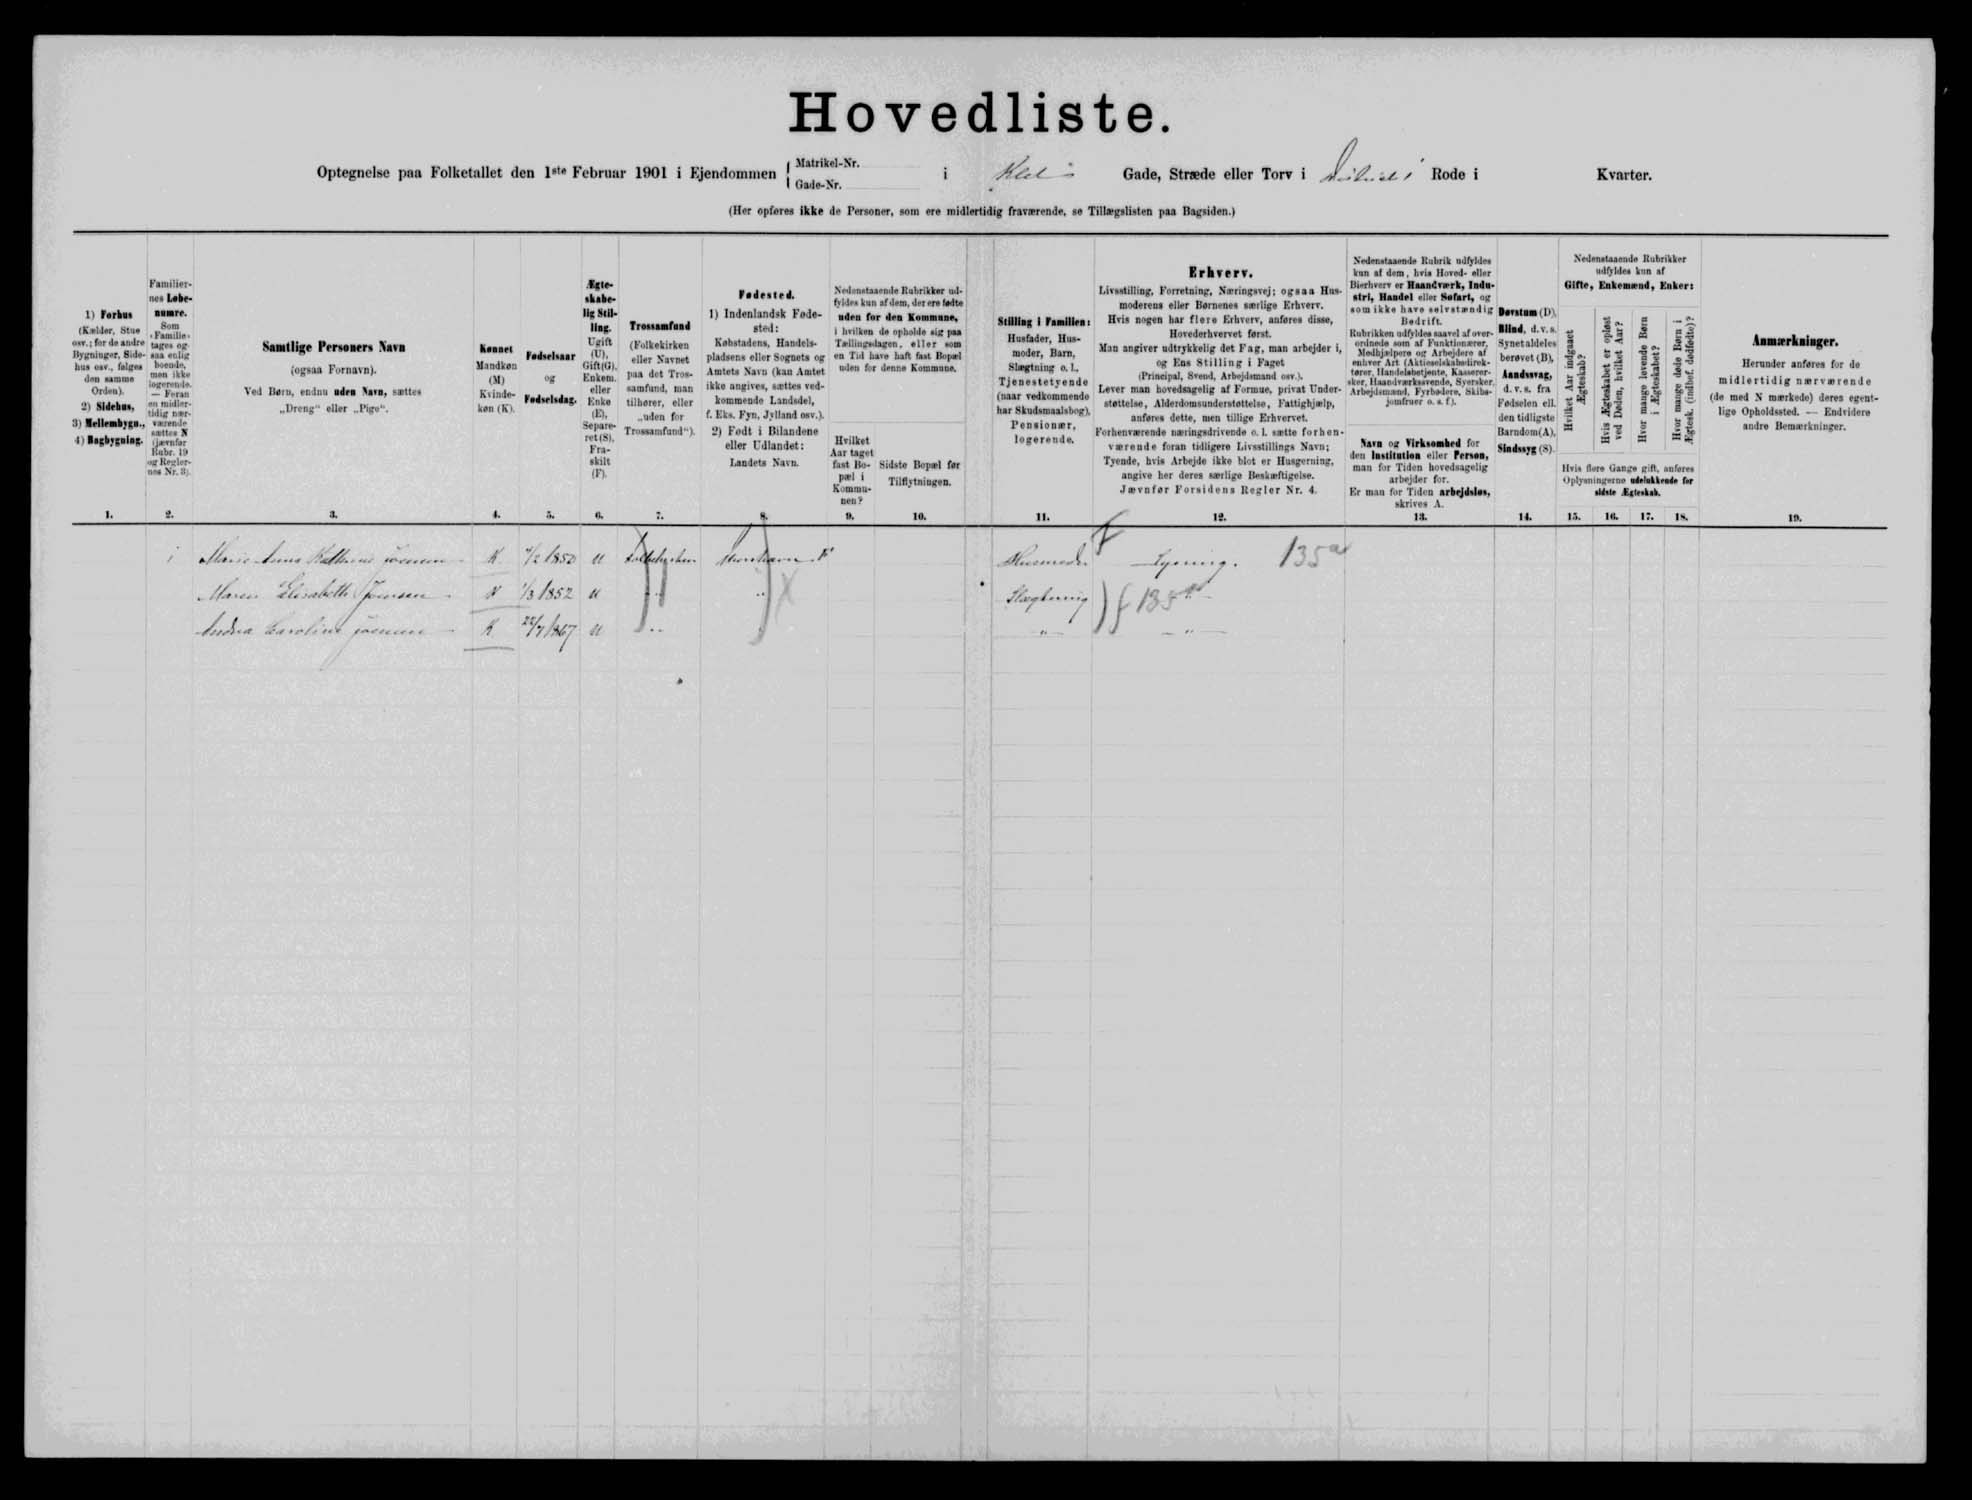 Hovedliste.
Optegnelse paa Folketallet den 1ste Februar 1901 i Ejendommen { Matrikel-Nr. Gade-Nr. i Gade, Stræde eller Torv i Rode i Kvarter.
(Her opføres ikke de Personer, som ere midlertidig fraværende, se Tillægslisten paa Bagsiden.)
1) Forhus
(Kælder, Stue
osv.; for de andre
Bygninger, Side-
hus osv., følges
den samme
Orden).
2) Sidehus,
3) Mellembygn.,
4) Bagbygning.
1.
Familier-
nes Løbe-
numre.
Som
›Familie‹
tages og-
saa enlig
boende,
men ikke
logerende.
— Foran
en midler-
tidig nær-
værende
sættes N
(jævnfør
Rubr. 19
og Regler-
nes Nr. 3).
2.
Samtlige Personers Navn
(ogsaa Fornavn).
Ved Børn, endnu uden Navn, sættes
„Dreng“ eller „Pige“.
3.
Kønnet
Mandkøn
(M)
Kvinde-
køn (K).
4.
Fødselsaar
og
Fødselsdag.
5.
Ægte-
skabe-
lig Stil-
ling.
Ugift
(U),
Gift(G),
Enkem.
eller
Enke
(E),
Separe-
ret (S),
Fra-
skilt
(F).
6.
Trossamfund
(Folkekirken
eller Navnet
paa det Tros-
samfund, man
tilhører, eller
„uden for
Trossamfund“).
7.
Fødested.
1) Indenlandsk Føde-
sted:
Købstadens, Handels-
pladsens eller Sognets og
Amtets Navn (kan Amtet
ikke angives, sættes ved-
kommende Landsdel,
f. Eks. Fyn, Jylland osv.).
2) Født i Bilandene
eller Udlandet:
Landets Navn.
8.
Nedenstaaende Rubrikker ud-
fyldes kun af dem, der ere fødte
uden for den Kommune,
i hvilken de opholde sig paa
Tællingsdagen, eller som
en Tid have haft fast Bopæl
uden for denne Kommune.
Hvilket
Aar taget
fast Bo-
pæl i
Kommu-
nen?
9.
Sidste Bopæl før
Tilflytningen.
10.
Stilling i Familien:
Husfader, Hus-
moder, Barn,
Slægtning o. l.,
Tjenestetyende
(naar vedkommende
har Skudsmaalsbog),
Pensionær,
logerende.
11.
Erhverv.
Livsstilling, Forretning, Næringsvej; ogsaa Hus-
moderens eller Børnenes særlige Erhverv.
Hvis nogen har flere Erhverv, anføres disse,
Hovederhvervet først.
Man angiver udtrykkelig det Fag, man arbejder i,
og Ens Stilling i Faget
(Principal, Svend, Arbejdsmand osv.).
Lever man hovedsagelig af Formue, privat Under-
støttelse, Alderdomsunderstøttelse, Fattighjælp,
anføres dette, men tillige Erhvervet.
Forhenværende næringsdrivende o. l. sætte forhen-
værende foran tidligere Livsstillings Navn;
Tyende, hvis Arbejde ikke blot er Husgerning,
angive her deres særlige Beskæftigelse.
Jævnfør Forsidens Regler Nr. 4.
12.
Nedenstaaende Rubrik udfyldes
kun af dem, hvis Hoved- eller
Bierhverv er Haandværk, Indu-
stri, Handel eller Søfart, og
som ikke have selvstændig
Bedrift.
Rubrikken udfyldes saavel af over-
ordnede som af Funktionærer,
Medhjælpere og Arbejdere af
enhver Art (Aktieselskabsdirek-
tører, Handelsbetjente, Kasserer-
sker, Haandværkssvende, Syersker,
Arbejdsmænd, Fyrbødere, Skibs-
jomfruer o. s. f.).
Navn og Virksomhed for
den Institution eller Person,
man for Tiden hovedsagelig
arbejder for.
Er man for Tiden arbejdsløs,
skrives A.
13.
Døvstum (D),
Blind, d. v. s.
Synet aldeles
berøvet (B),
Aandssvag,
d. v. s. fra
Fødselen ell.
den tidligste
Barndom(A),
Sindssyg (S).
14.
Nedenstaaende Rubrikker
udfyldes kun af
Gifte, Enkemænd, Enker:
Hvilket Aar indgaaet
Ægteskab?
Hvis Ægteskabet er opløst
ved Døden, hvilket Aar?
Hvor mange levende Børn
i Ægteskabet?
Hvor mange døde Børn i
Ægtesk. (indbef. dødfødte)?
Hvis flere Gange gift, anføres
Oplysningerne udelukkende for
sidste Ægteskab.
15. 16. 17. 18.
Anmærkninger.
Herunder anføres for de
midlertidig nærværende
(de med N mærkede) deres egent-
lige Opholdssted. — Endvidere
andre Bemærkninger.
19.
1 Marie Anna Kathrine Joensen K 1850 U Folkekirken Thorshavn Husmoder Syning. 135
Maren Elisabeth Joensen K 1/3 1852 U " " Slægtning 135 "
Andrea Caroline Joensen K 22/7 1867 U " " " "